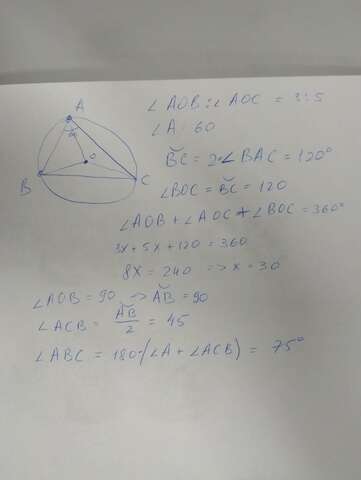 ∠AOB : ∠AOC = 3:5
∠A = 60
B͝C = 2·∠BAC = 120°
∠BOC = B͝C = 120
∠AOB + ∠AOC + ∠BOC = 360°
3x + 5x + 120 = 360
8x = 240 => x = 30
∠AOB = 90 -> A͝B = 90
∠ACB = A͝B/2 = 45
∠ABC = 180-(∠A + ∠ACB) = 75°
A
60
O
B
C